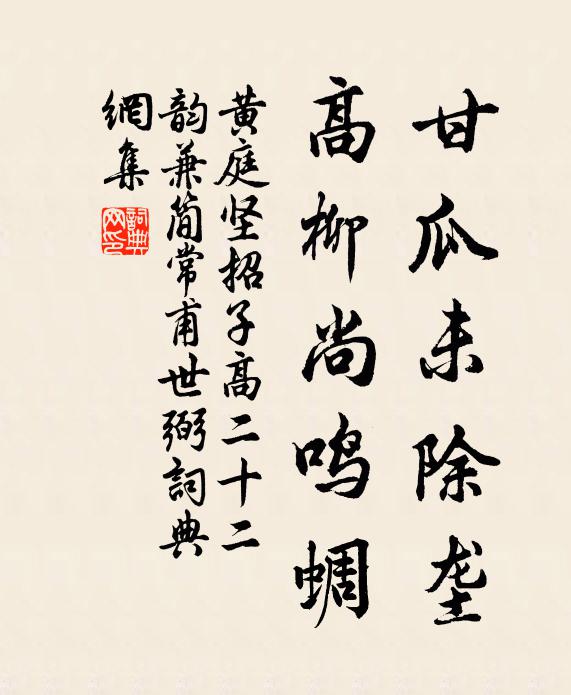 甘瓜未除垄
高柳尚鸣蜩
黄庭坚招子高二十二
韵兼简常甫世弼詞典
網集
詞典
网印